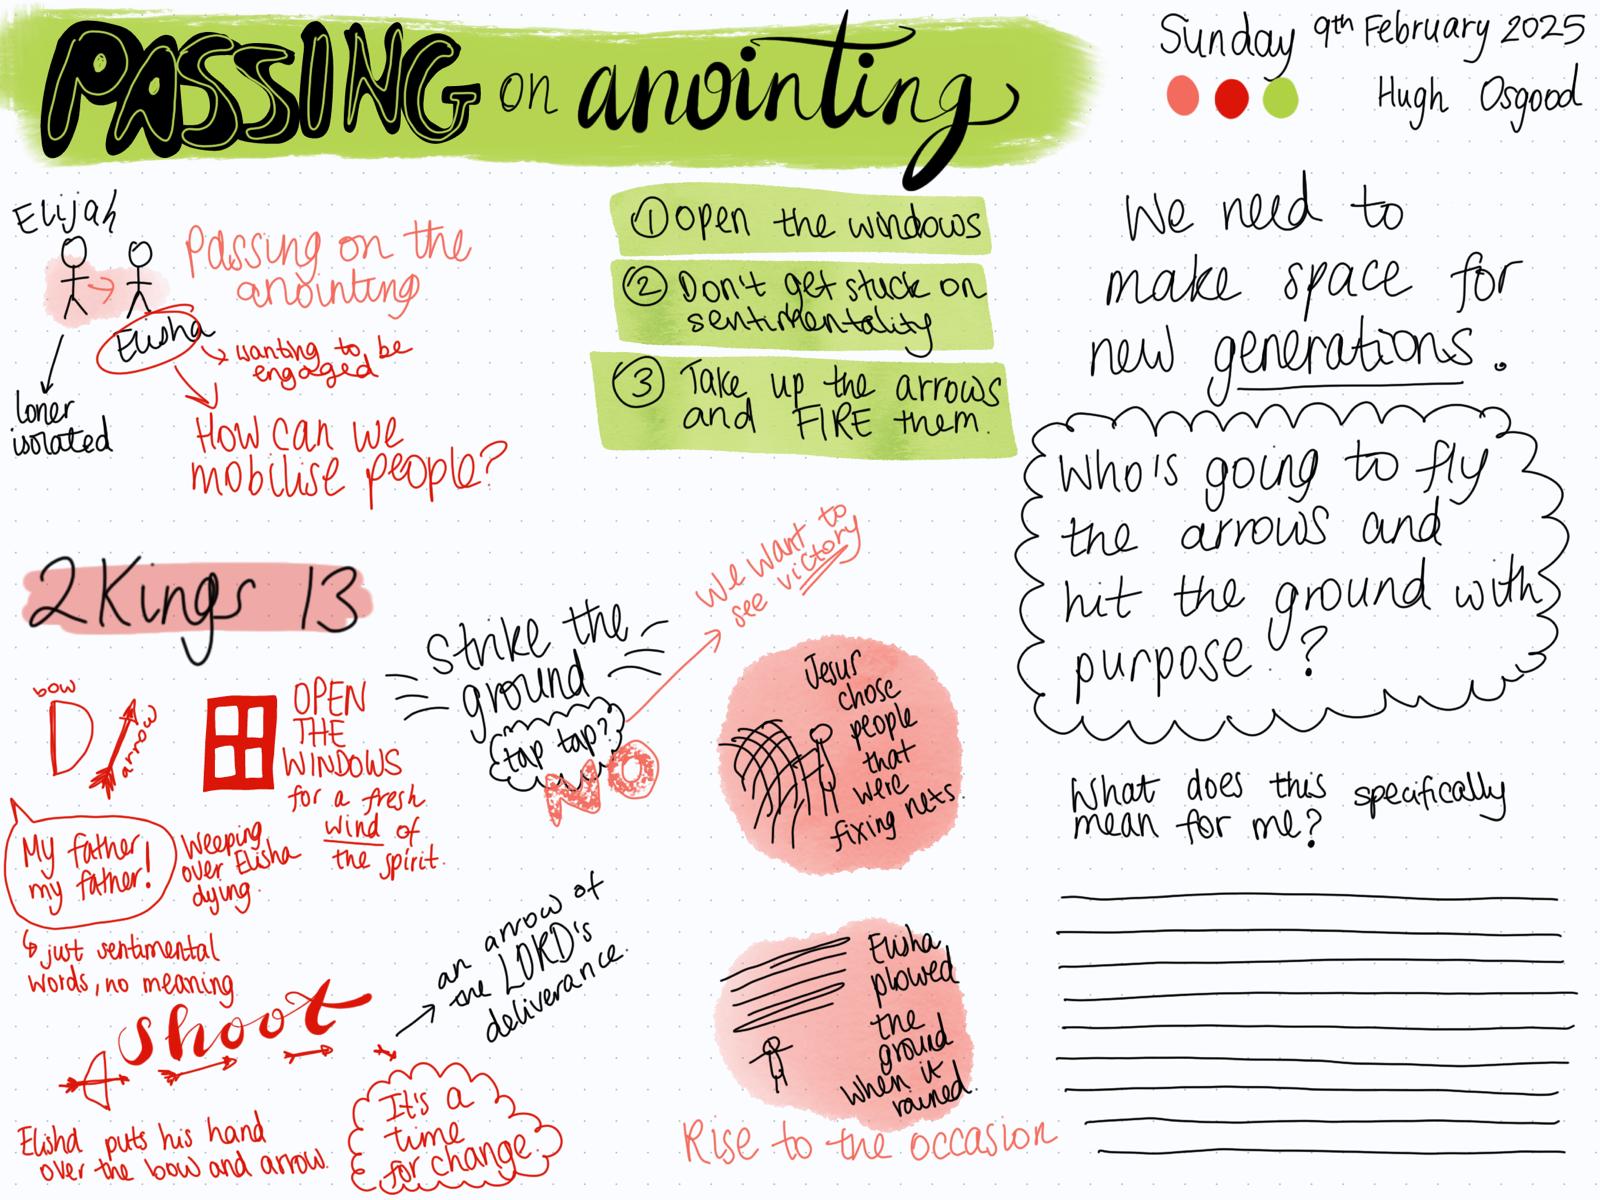 PASSING on anointing
Sunday 9th February 2025
Hugh Osgood
Elijah
Passing on the
anointing
Elisha
wanting to be
engaged
loner
isolated
How can we
mobilise people?
① Open the windows
② Don't get stuck on
sentimentality
③ Take up the arrows
and FIRE them.
We need to
make space for
new generations.
Who's going to fly
the arrows and
hit the ground with
purpose?
What does this specifically
mean for me?
2 Kings 13
bow
arrow
OPEN
THE
WINDOWS
for a fresh
wind of
the spirit.
My father!
my father!
Weeping
over Elisha
dying.
just sentimental
words, no meaning
shoot
Elisha puts his hand
over the bow and arrow.
an arrow of
the LORD's
deliverance.
It's a
time
for change.
Strike the
ground
tap tap?
NO
We want to
see victory
Jesus
chose
people
that
were
fixing nets.
Elisha
plowed
the
ground
when it
rained.
Rise to the occasion